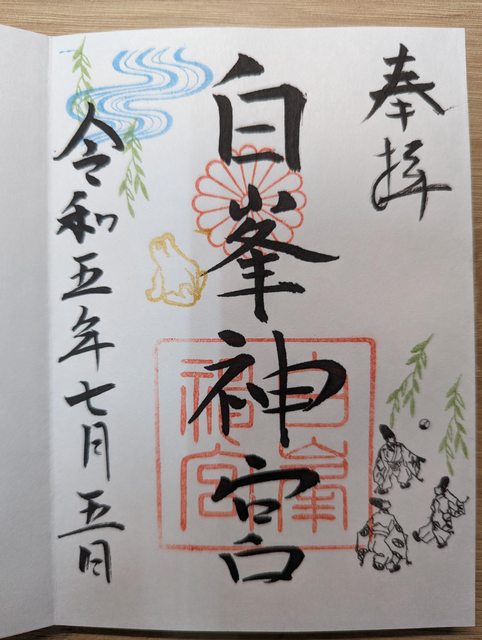 奉拝
白峯神宮
白峯
神宮
令和五年七月五日